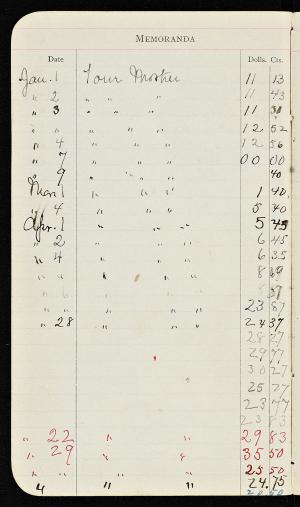 MEMORANDA
Date Dolls. Cts.
Jan. 1 Your Mother 11 13
" 2 " " 11 43
" 3 " " " 11
" " " " " 12 52
" 4 " " " 12 56
" 7 " " " 00 00
" 9 " " " 40
Mar. 1 " " " 1 40
" 4 " " " 5 40
Apr. 1 " " " 5 45
" 2 " " " 6 45
" 4 " " " 6 35
" 4 " " " 8
" 6 " " " 8 37
" " " " " 23 87
" 28 " " 24 37
28 27
29 77
30 27
25 27
23 77
23
" 22 " " 29 83
" 29 " " 35 50
" " " " 25 50
" 4 " " 24.75